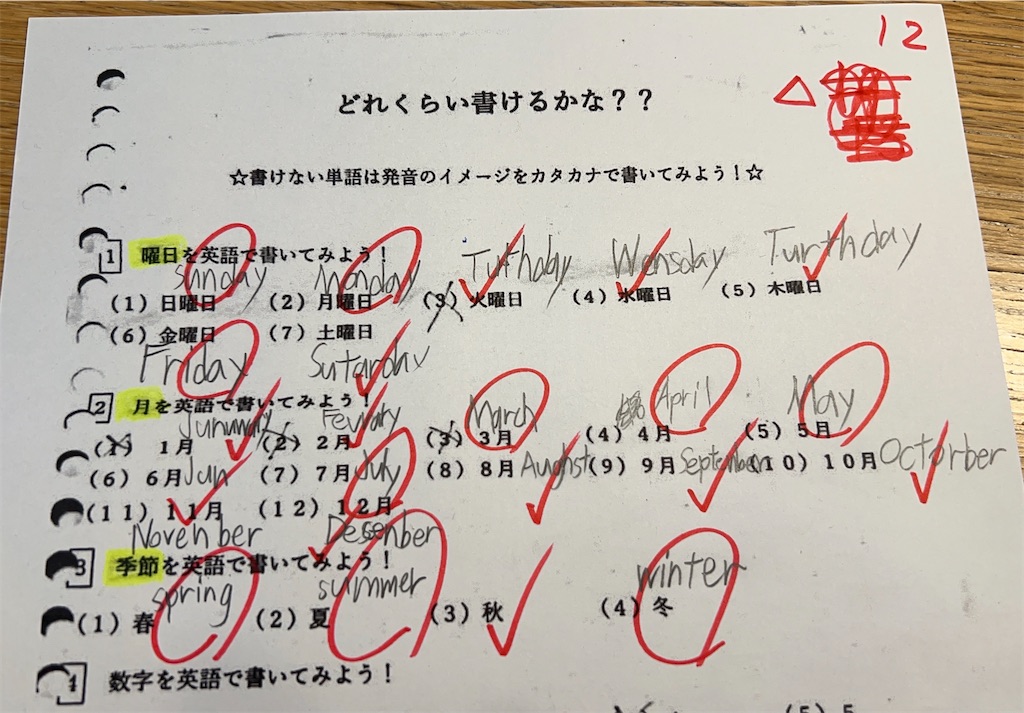 12
どれくらい書けるかな？？
△
☆書けない単語は発音のイメージをカタカナで書いてみよう！☆
1 曜日を英語で書いてみよう！
sunday monday Tuthday Wensday Turthday
(1) 日曜日 (2) 月曜日 (3) 火曜日 (4) 水曜日 (5) 木曜日
(6) 金曜日 (7) 土曜日
Friday Sutarday
2 月を英語で書いてみよう！
March April May
(1) 1月 (2) 2月 (3) 3月 (4) 4月 (5) 5月
(6) 6月 Jun (7) 7月 July (8) 8月 Augbst (9) 9月 September (10) 10月 Octorber
(11) 11月 (12) 12月
Novenber Desenber
3 季節を英語で書いてみよう！
spring summer winter
(1) 春 (2) 夏 (3) 秋 (4) 冬
4 数字を英語で書いてみよう！
(5) 5